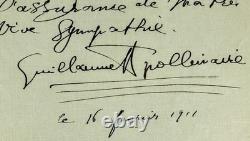 l'assurance de ma très
vive sympathie.
Guillaume Apollinaire
le 16 février 1911